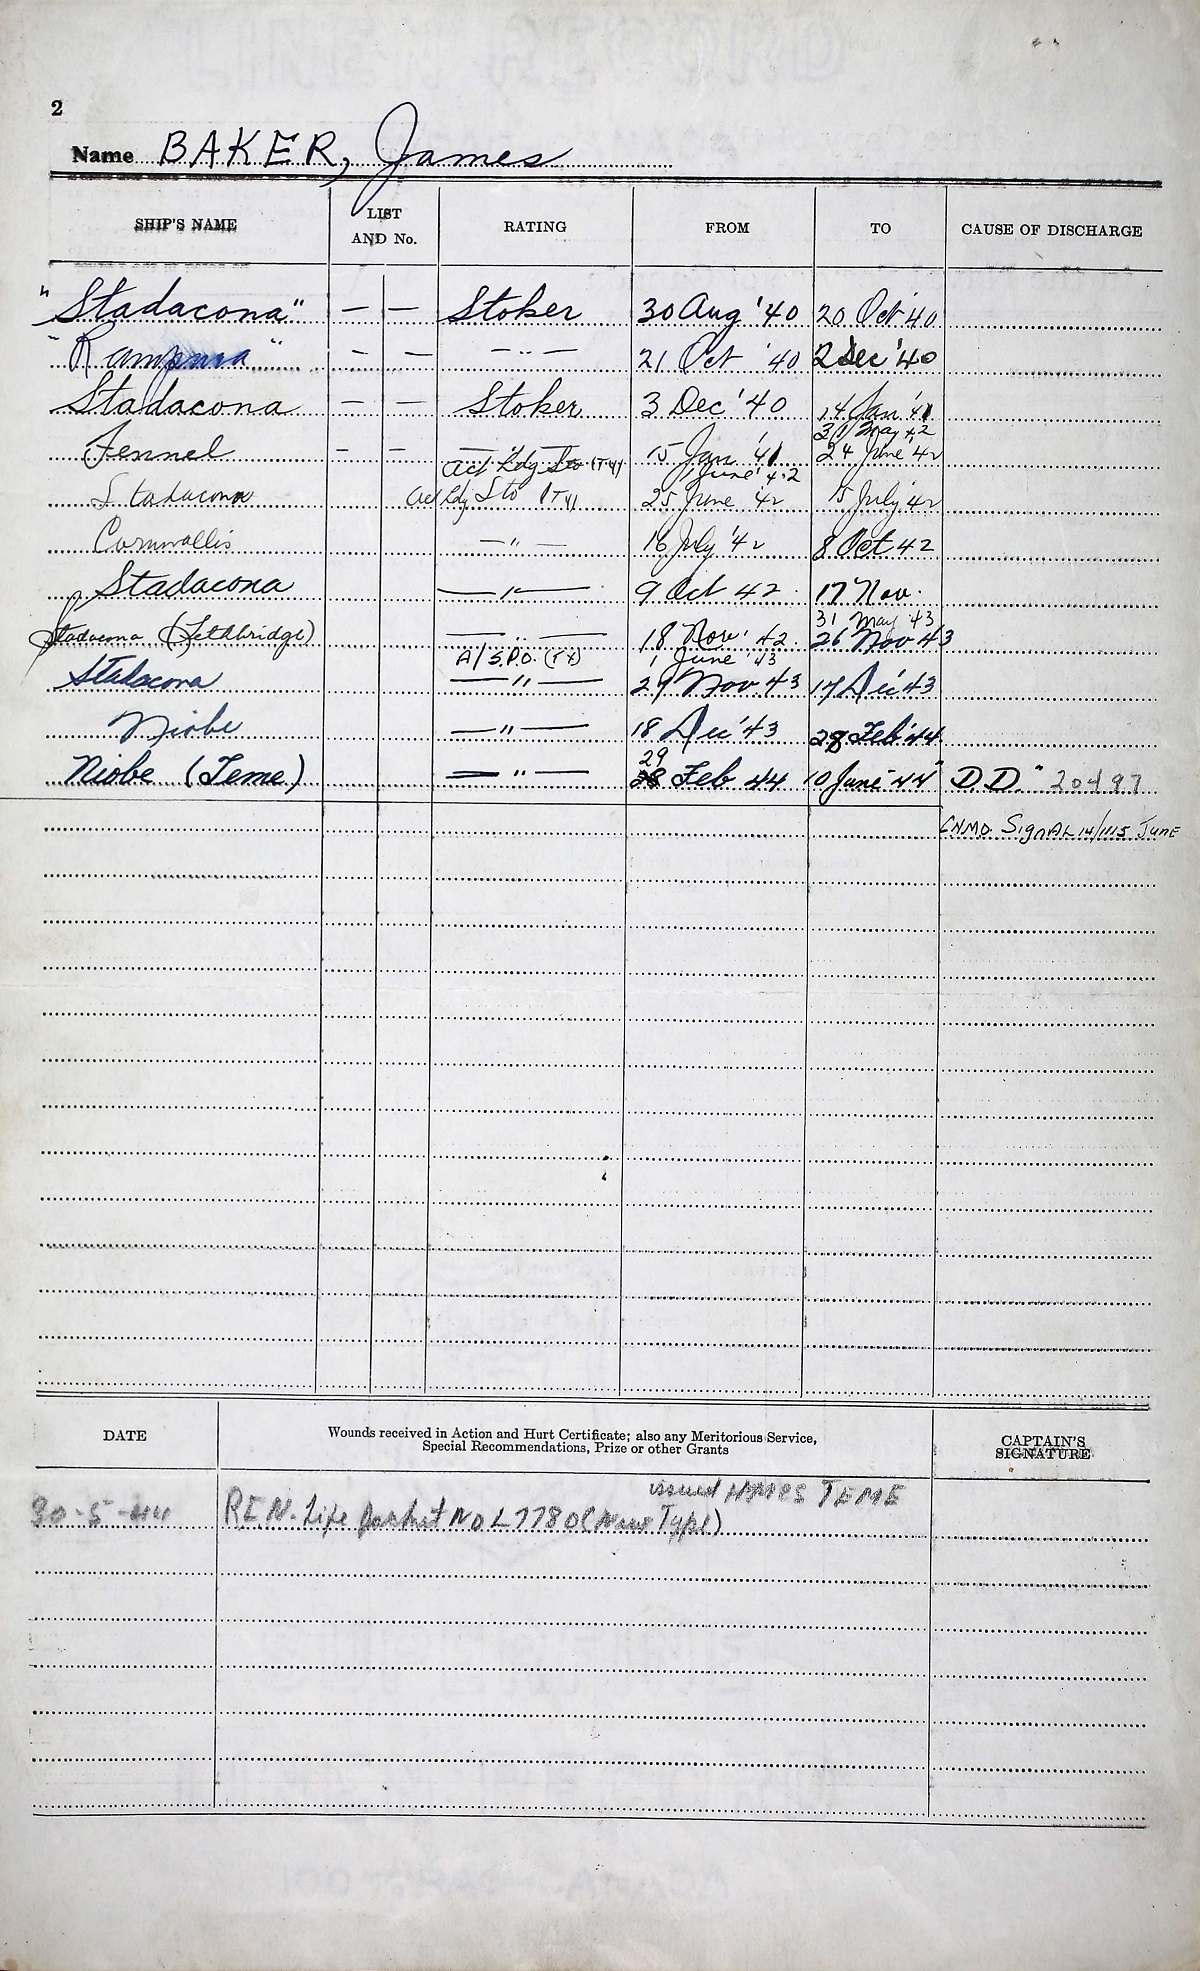 2
Name BAKER, James
SHIP'S NAME LIST AND No. RATING FROM TO CAUSE OF DISCHARGE
"Stadacona" — — Stoker 30 Aug '40 20 Oct '40
"Rampura" — — — " — 21 Oct '40 2 Dec '40
Stadacona — — Stoker 3 Dec '40 14 Jan '41
31 May 42
Fennel — — — 15 Jan '41 24 June '42
Act Ldg Sto (Ty) 1 June '42
Stadacona Act Ldg Sto (Ty) 25 June '42 15 July '42
Cornwallis — " — 16 July '42 8 Oct 42
Stadacona — " — 9 Oct 42 17 Nov.
31 May '43
Stadacona (Lethbridge) — " — 18 Nov. 42 26 Nov 43
A/S.P.O. (Ty) 1 June '43
Stadacona — " — 27 Nov 43 17 Dec '43
Niobe — " — 18 Dec '43 28 Feb '44
29
Niobe (Teme) — " — Feb 44 10 June '44 "D.D." 20497
CNMO Signal 14/1115 June
DATE Wounds received in Action and Hurt Certificate; also any Meritorious Service, CAPTAIN'S
Special Recommendations, Prize or other Grants SIGNATURE
issued HMCS TEME
30-5-44 R.C.N. Life Jacket No L7780 (New Type)